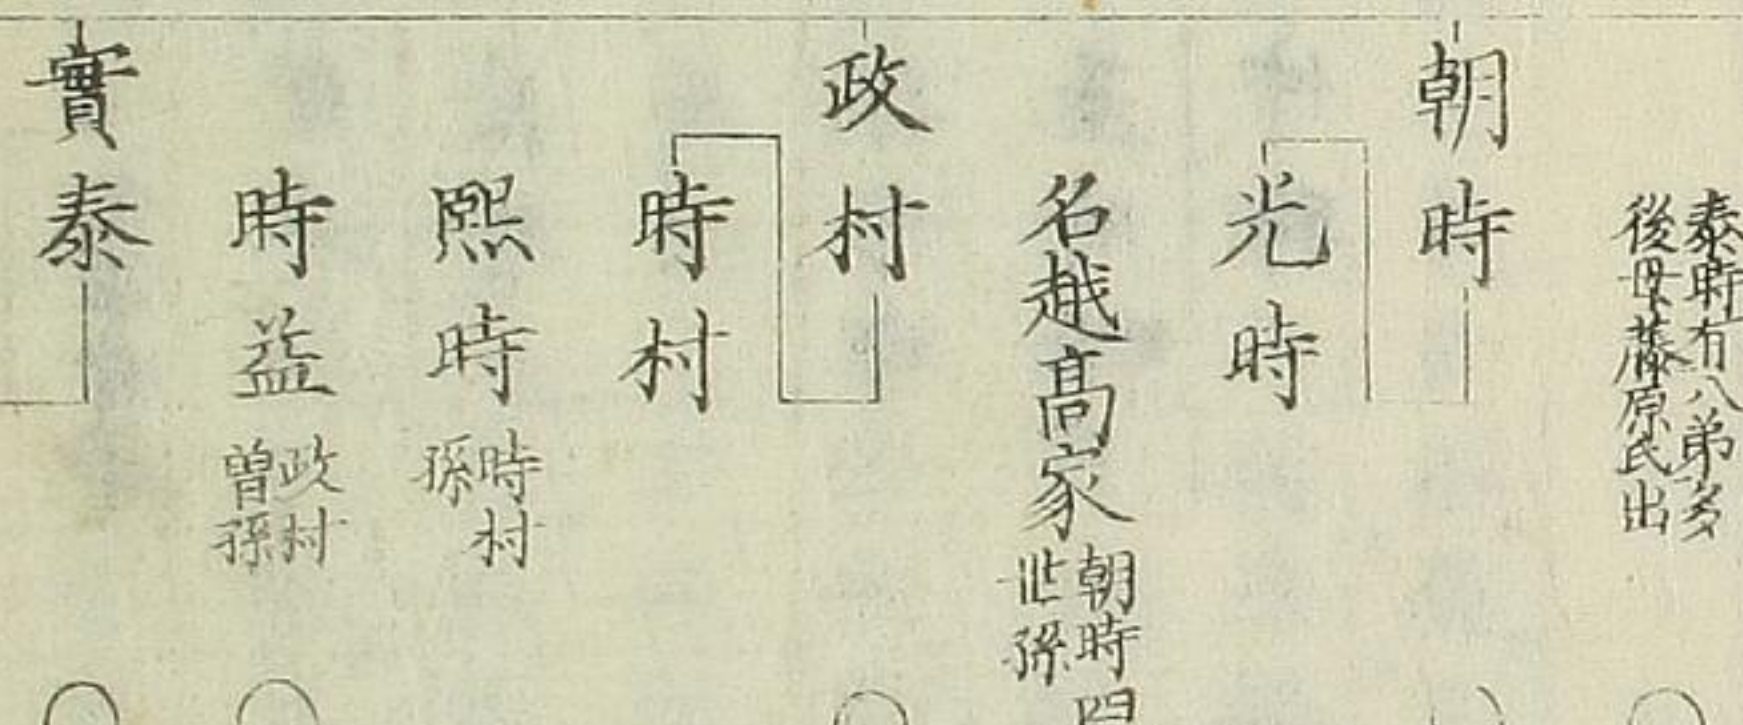 泰時有八弟多
後母藤原氏出
朝時
光時
名越高家
朝時四
世孫
政村
時村
熙時
時村
孫
時益
政村
曽孫
實泰